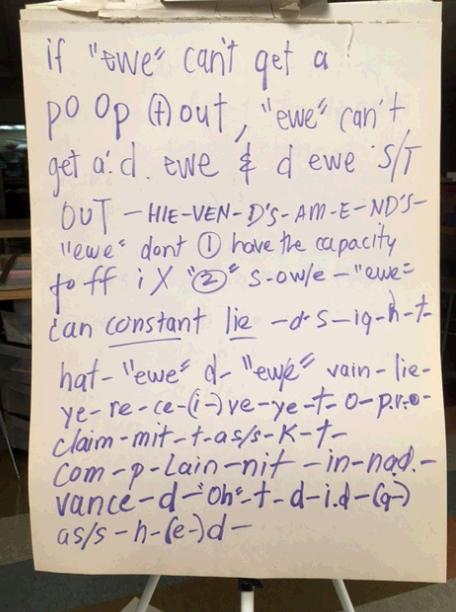 if "ewe" can't get a
po op (t) out, "ewe" can't
get a.d. ewe & d ewe S/T
OUT - HIE-VEN-D'S-AM-E-ND'S-
"ewe" dont ① have the capacity
to ff i X "②" s-ow/e - "ewe"
can constant lie -d-s-ig-h-t-
hat- "ewe" d- "ewe" vain-lie-
ye-re-ce-(i-)ve-ye-t-o-p.r.o-
claim-mit-t-as/s-k-t-
com-p-lain-nit-in-nad.-
vance-d-"oh"-t-d-i.d-(g-)
as/s-h-(e-)d-